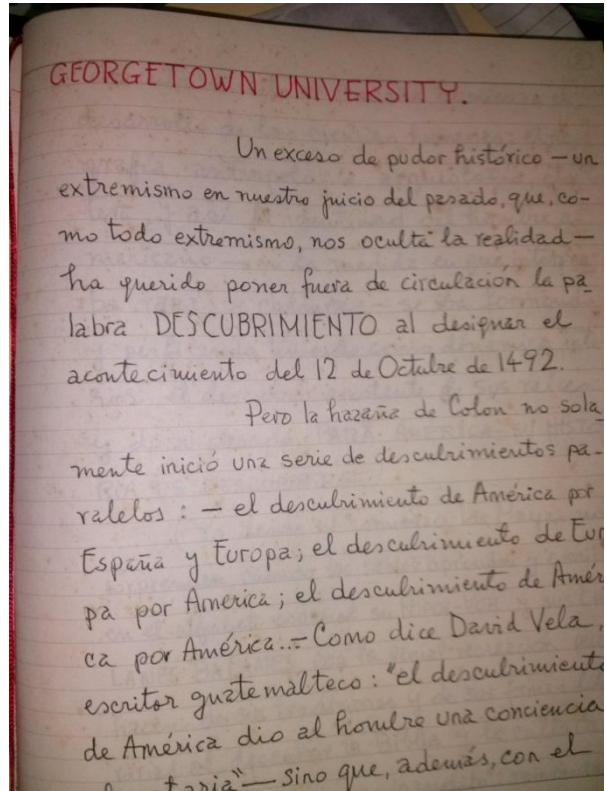 GEORGETOWN UNIVERSITY.
Un exceso de pudor histórico — un
extremismo en nuestro juicio del pasado, que, co-
mo todo extremismo, nos oculta la realidad —
ha querido poner fuera de circulación la pa-
labra DESCUBRIMIENTO al designar el
acontecimiento del 12 de Octubre de 1492.
Pero la hazaña de Colon no sola
mente inició una serie de descubrimientos pa-
ralelos : — el descubrimiento de América por
España y Europa; el descubrimiento de Eur
pa por America; el descubrimiento de Amér
ca por América..— Como dice David Vela,
escritor guatemalteco : "el descubrimient
de América dio al hombre una conciencia
" — sino que, además, con el